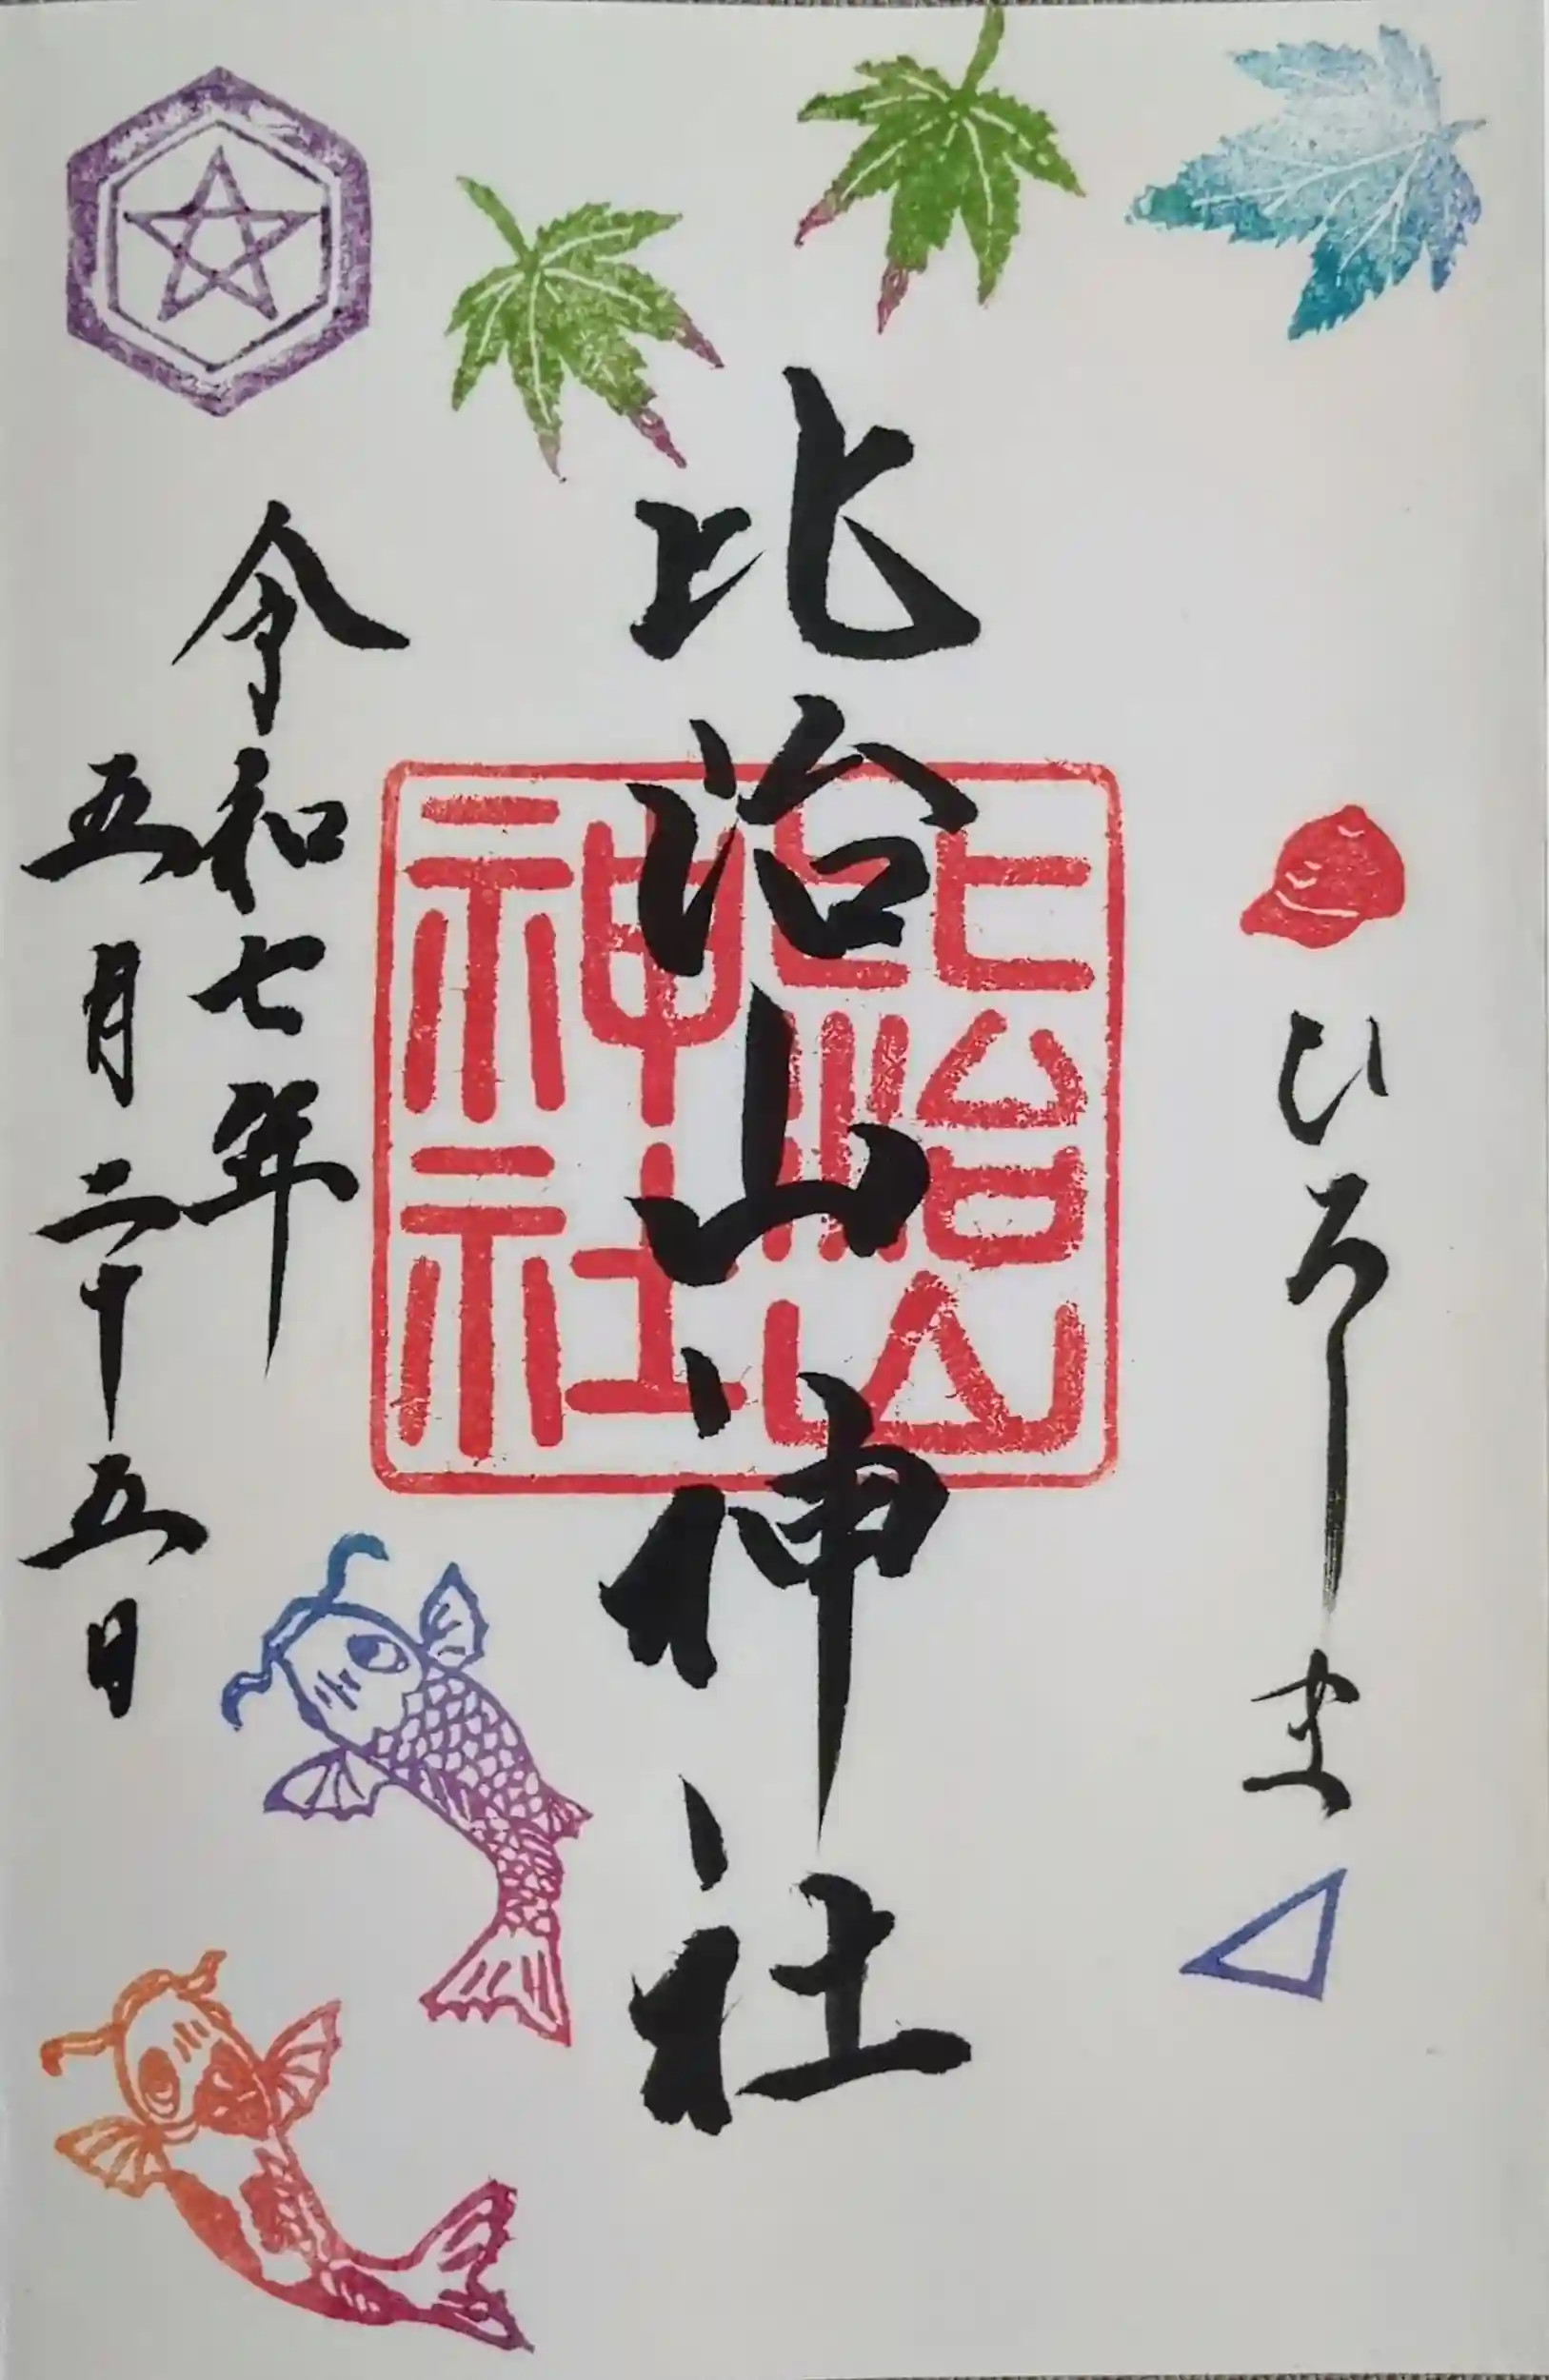 ひろしま
比治山神社
比治山神社
令和七年
五月二十五日